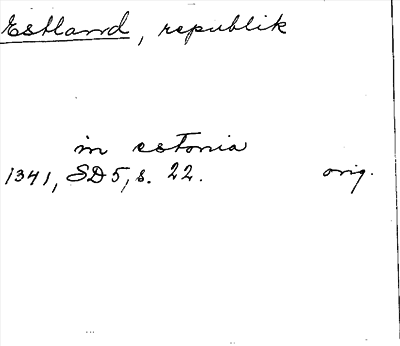 Estland, republik
in estonia
1341, SD 5, s. 22. orig.